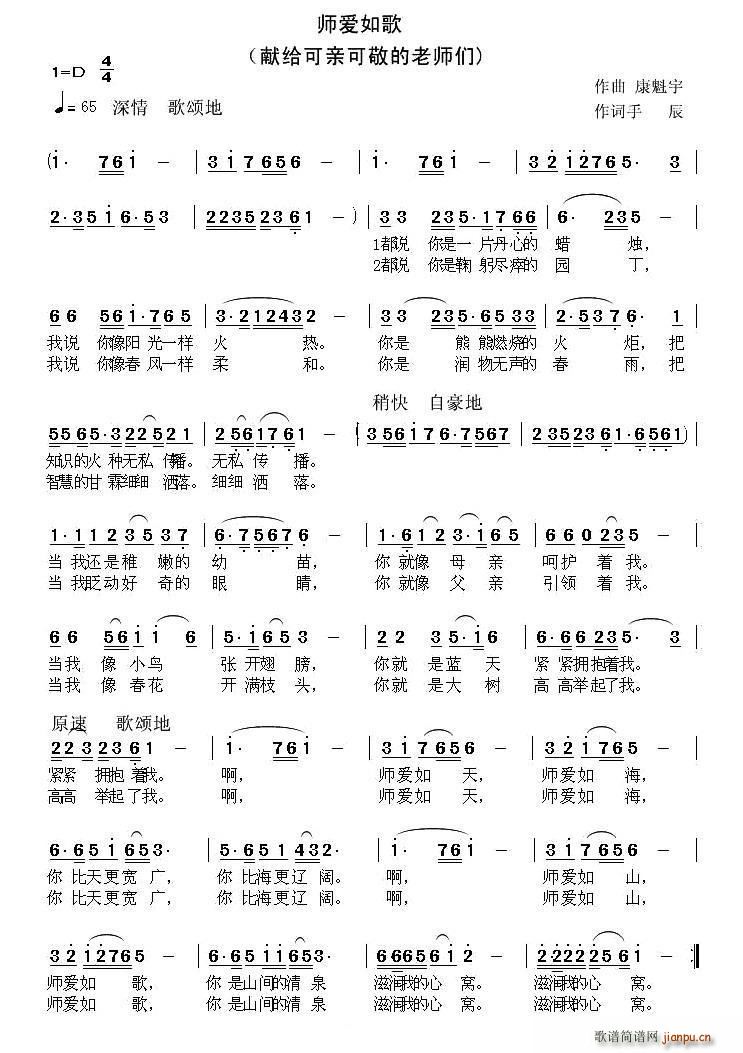 师爱如歌
（献给可亲可敬的老师们）
1=D 4/4
作曲 康魁宇
♩= 65 深情 歌颂地
作词手 辰
(i· 761 – | 3 i 7656 – | 32 i2765· 3 |
2·35i 6·53 | 22352361 – ) | 33 235·1766 | 6· 235 – |
1都说 你是一 片丹心的 蜡 烛，
2都说 你是鞠 躬尽瘁的 园 丁，
66 561·765 | 3·212432 – | 33 235·6535 | 2·5376· 1 |
我说 你像阳 光一样 火 热。 你是 熊 熊燃烧的 火 炬，把
我说 你像春 风一样 柔 和。 你是 润 物无声的 春 雨，把
稍快 自豪地
5565·322521 | 256176 – | (356176·7567 | 2352361·6561) |
知识的火 种无私 传播。 无私 传 播。
智慧的甘 霖细细 洒落。 细细 洒 落。
1·112 3537 | 6·75676 – | 1·612 3·i65 | 660235 – |
当 我还是稚 嫩的 幼 苗， 你 就像 母 亲 呵护 着 我。
当 我眨动好 奇的 眼 睛， 你 就像 父 亲 引领 着 我。
66 56ii 6 | 5·i65 3 – | 22 356i – | 6·66235· 3 |
当我 像 小鸟 张 开翅 膀， 你就 是蓝 天 紧 紧拥抱着我。
当我 像 春花 开 满枝 头， 你就 是大 树 高 高举起了我。
原速 歌颂地
223 2361 – | i· 761 – | 3 i 7656 – | 32 i2765 – |
紧紧 拥抱 着我。 啊， 师爱如 天， 师爱如 海，
高高 举起了 我。 啊， 师爱如 天， 师爱如 海，
6·65i 653· | 5·651 432· | i· 761 – | 3i 7656 – |
你 比天更宽 广， 你 比海更辽 阔。 啊， 师爱如 山，
你 比天更宽 广， 你 比海更辽 阔。 啊， 师爱如 山，
32 i2765 – | 6·65i i653· | 666561 2 – | 2·222561 2 – ‖
师爱如 歌， 你 是山间的清 泉 滋润我的心 窝。 滋润我的心 窝。
师爱如 歌， 你 是山间的清 泉 滋润我的心 窝。 滋润我的心 窝。
歌谱简谱网
jianpu.cn